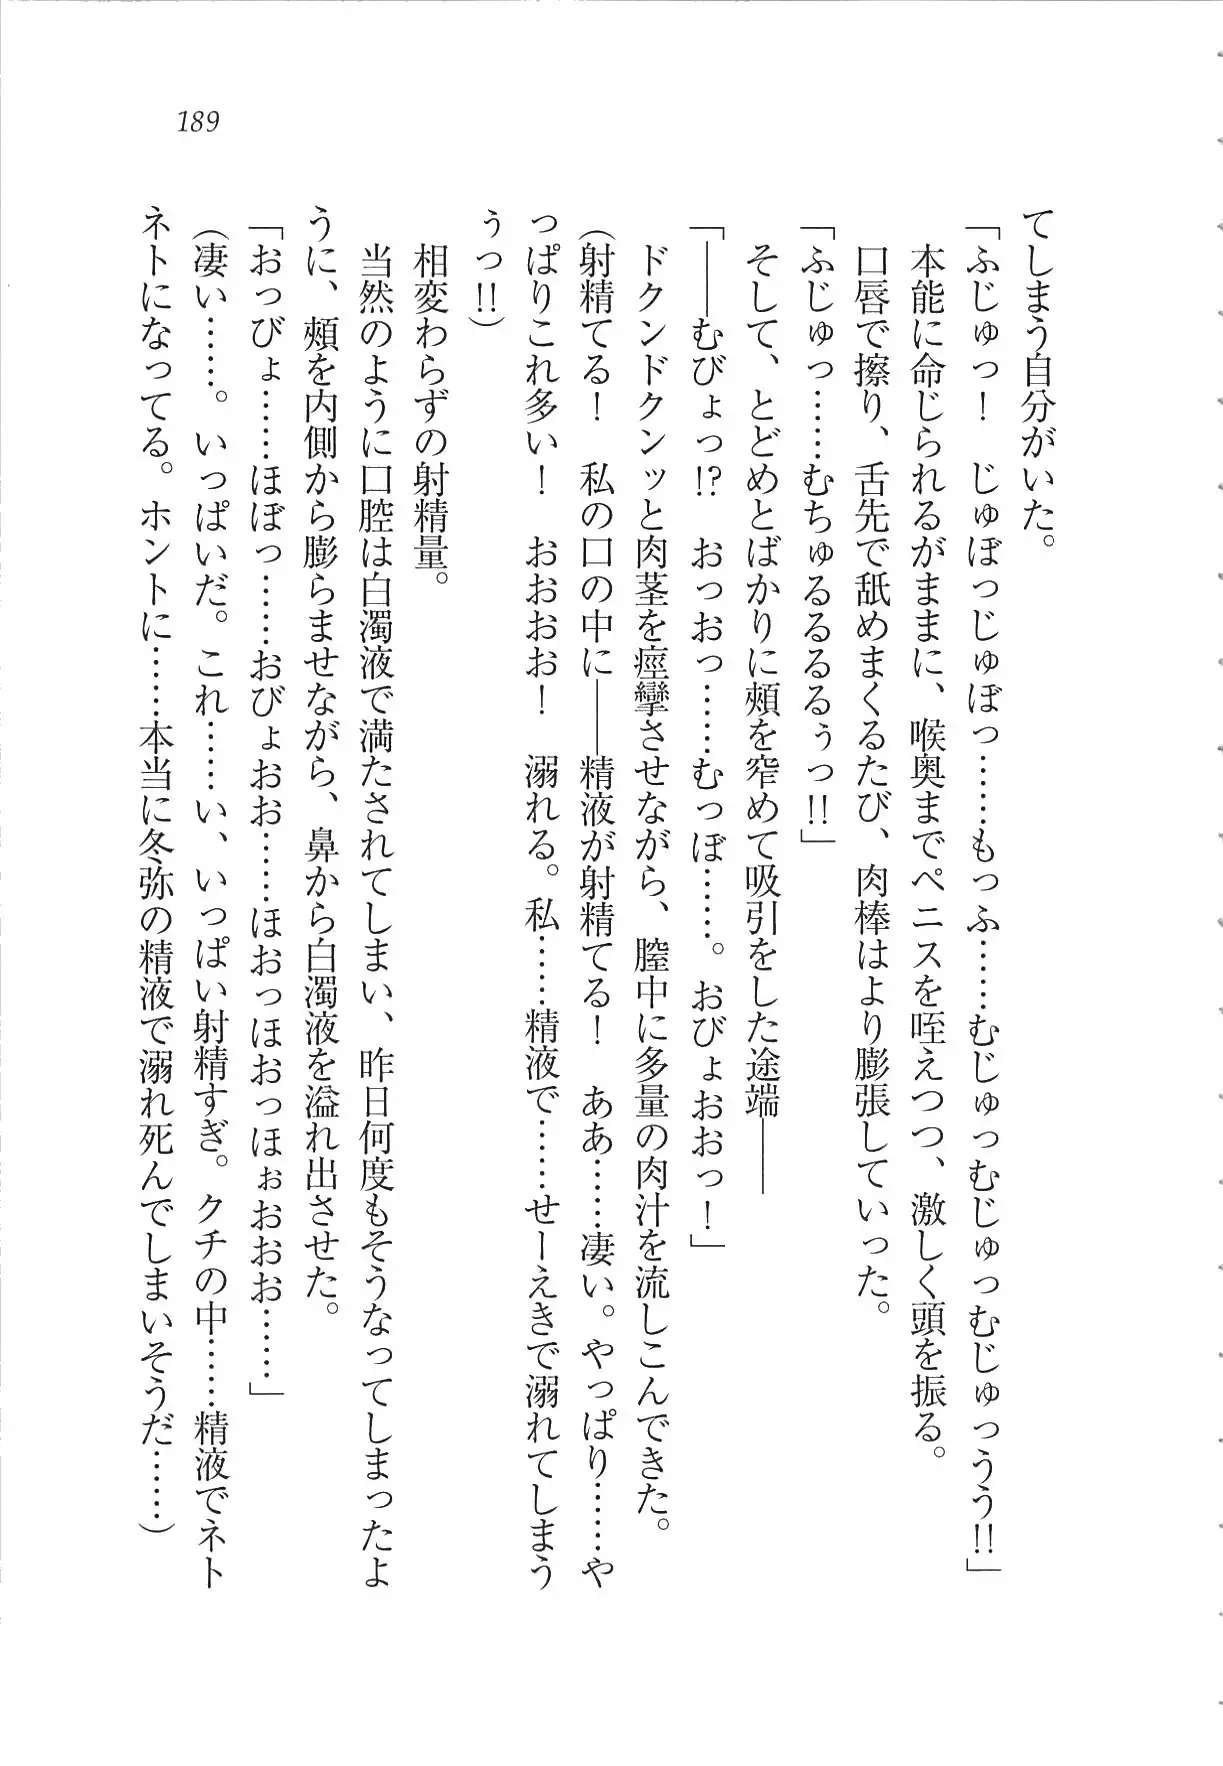 189
てしまう自分がいた。
「ふじゅっ！　じゅぼっじゅぼっ……もっふ……むじゅっむじゅっむじゅっうう!!」
本能に命じられるがままに、喉奥までペニスを咥えつつ、激しく頭を振る。
口唇で擦り、舌先で舐めまくるたび、肉棒はより膨張していった。
「ふじゅっ……むちゅるるるるぅっ!!」
そして、とどめとばかりに頬を窄めて吸引をした途端――
「――むびょっ!?　おっおっ……むっぼ……。おびょおおっ！」
ドクンドクンッと肉茎を痙攣させながら、膣中に多量の肉汁を流しこんできた。
（射精てる！　私の口の中に――精液が射精てる！　ああ……凄い。やっぱり……や
っぱりこれ多い！　おおおお！　溺れる。私……精液で……せーえきで溺れてしまう
ぅっ!!）
相変わらずの射精量。
当然のように口腔は白濁液で満たされてしまい、昨日何度もそうなってしまったよ
うに、頬を内側から膨らませながら、鼻から白濁液を溢れ出させた。
「おっびょ……ほぼっ……おびょおお……ほおっほおっほぉおおお……」
（凄い……。いっぱいだ。これ……い、いっぱい射精すぎ。クチの中……精液でネト
ネトになってる。ホントに……本当に冬弥の精液で溺れ死んでしまいそうだ……）